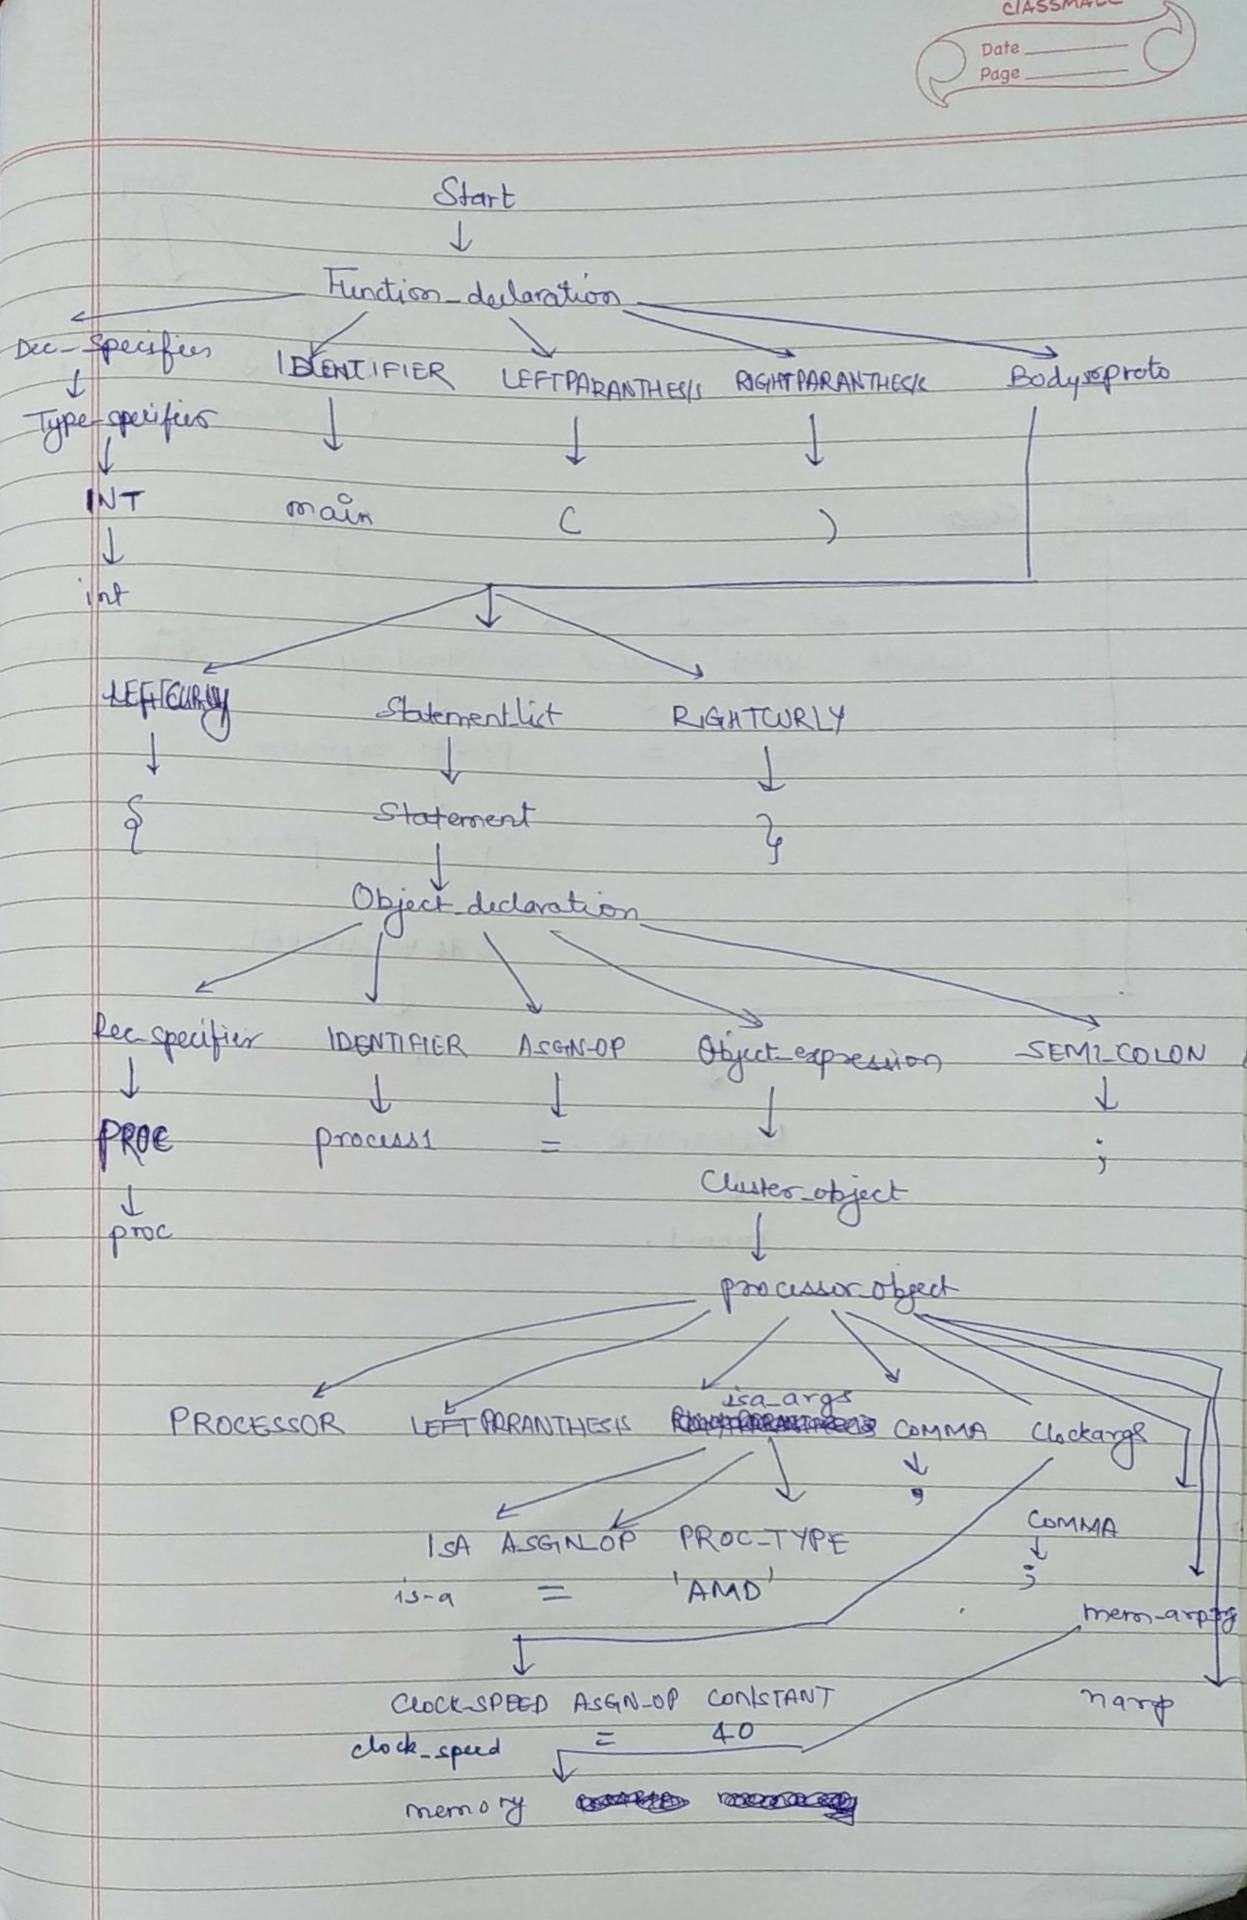 CLASSMATE
Date
Page
Start
Function_declaration
Dec_Specifier IDENTIFIER LEFTPARANTHESIS RIGHTPARANTHESIS Body_proto
Type_specifier
INT main ( )
int
LEFTCURLY Statement_list RIGHTCURLY
{ Statement }
Object_declaration
Dec_specifier IDENTIFIER ASGN-OP Object_expression SEMI_COLON
PROC process1 = ;
Cluster_object
proc
processor_object
isa_args
PROCESSOR LEFTPARANTHESIS COMMA Clockargs
,
ISA ASGN_OP PROC_TYPE COMMA
is-a = 'AMD' ;
CLOCK-SPEED ASGN-OP CONSTANT
clock_speed = 40
memory